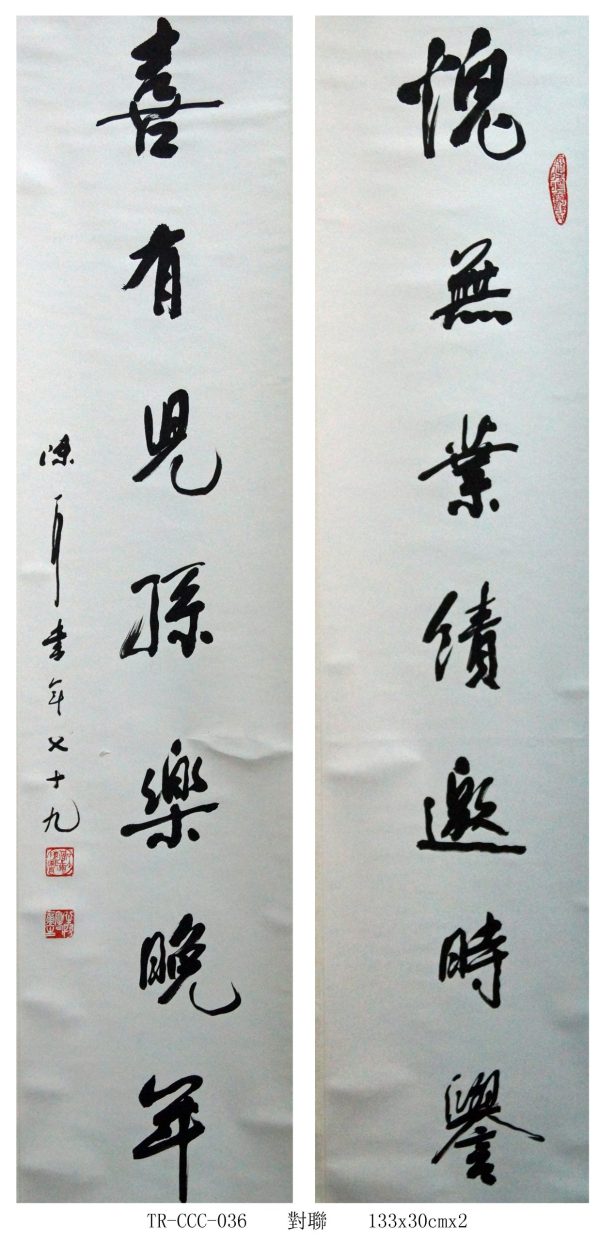 愧無業績邀時譽
喜有兒孫樂晚年
陳 年七十九
TR-CCC-036 對聯 133x30cmx2